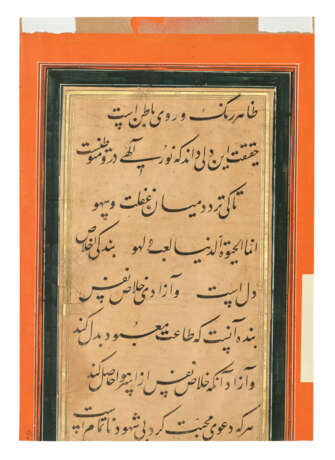 ظاهر رنگ و روی باطن است
حقیقت این دلی داند که نور آلهی درو متوطنست
تا کی تردد میان غفلت و سهو
انما الحیوة الدنیا لعب و لهو بندگی اخلاص
دل است و آزادی خلاص نفس
بنده آنست که طاعت معبود بدل کند
و آزاد آنکه خلاص نفس از حاصل کند
هر که دعوی محبت کرد بی شهود ناتمام است